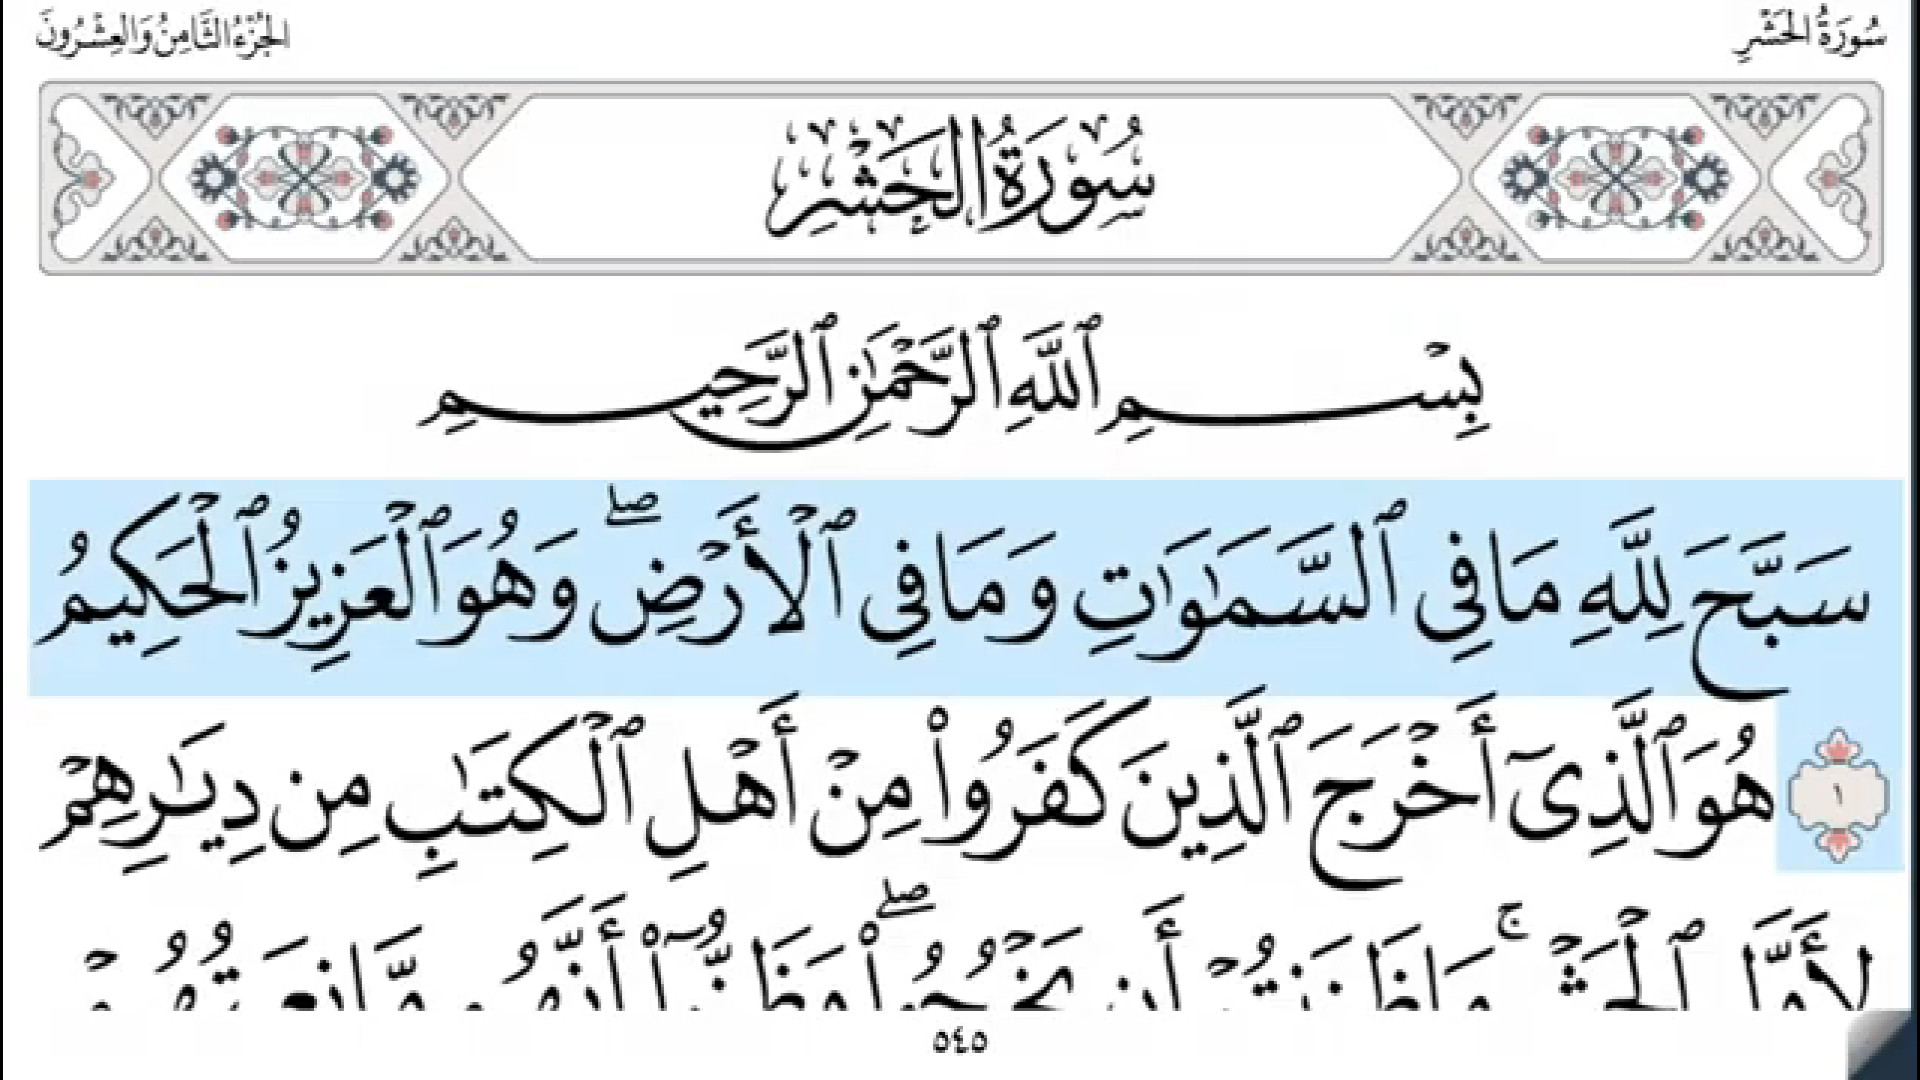 سُورَةُ الحَشْرِ
الجُزْءُ الثَّامِنُ وَالعِشْرُونَ
سُورَةُ الحَشْرِ
بِسْمِ ٱللَّهِ ٱلرَّحْمَٰنِ ٱلرَّحِيمِ
سَبَّحَ لِلَّهِ مَا فِي ٱلسَّمَٰوَٰتِ وَمَا فِي ٱلْأَرْضِۖ وَهُوَ ٱلْعَزِيزُ ٱلْحَكِيمُ
١ هُوَ ٱلَّذِىٓ أَخْرَجَ ٱلَّذِينَ كَفَرُوا۟ مِنْ أَهْلِ ٱلْكِتَٰبِ مِن دِيَٰرِهِمْ
لِأَوَّلِ ٱلْحَشْرِۚ مَا ظَنَنتُمْ أَن يَخْرُجُوا۟ۖ وَظَنُّوٓا۟ أَنَّهُم مَّانِعَتُهُمْ
٥٤٥